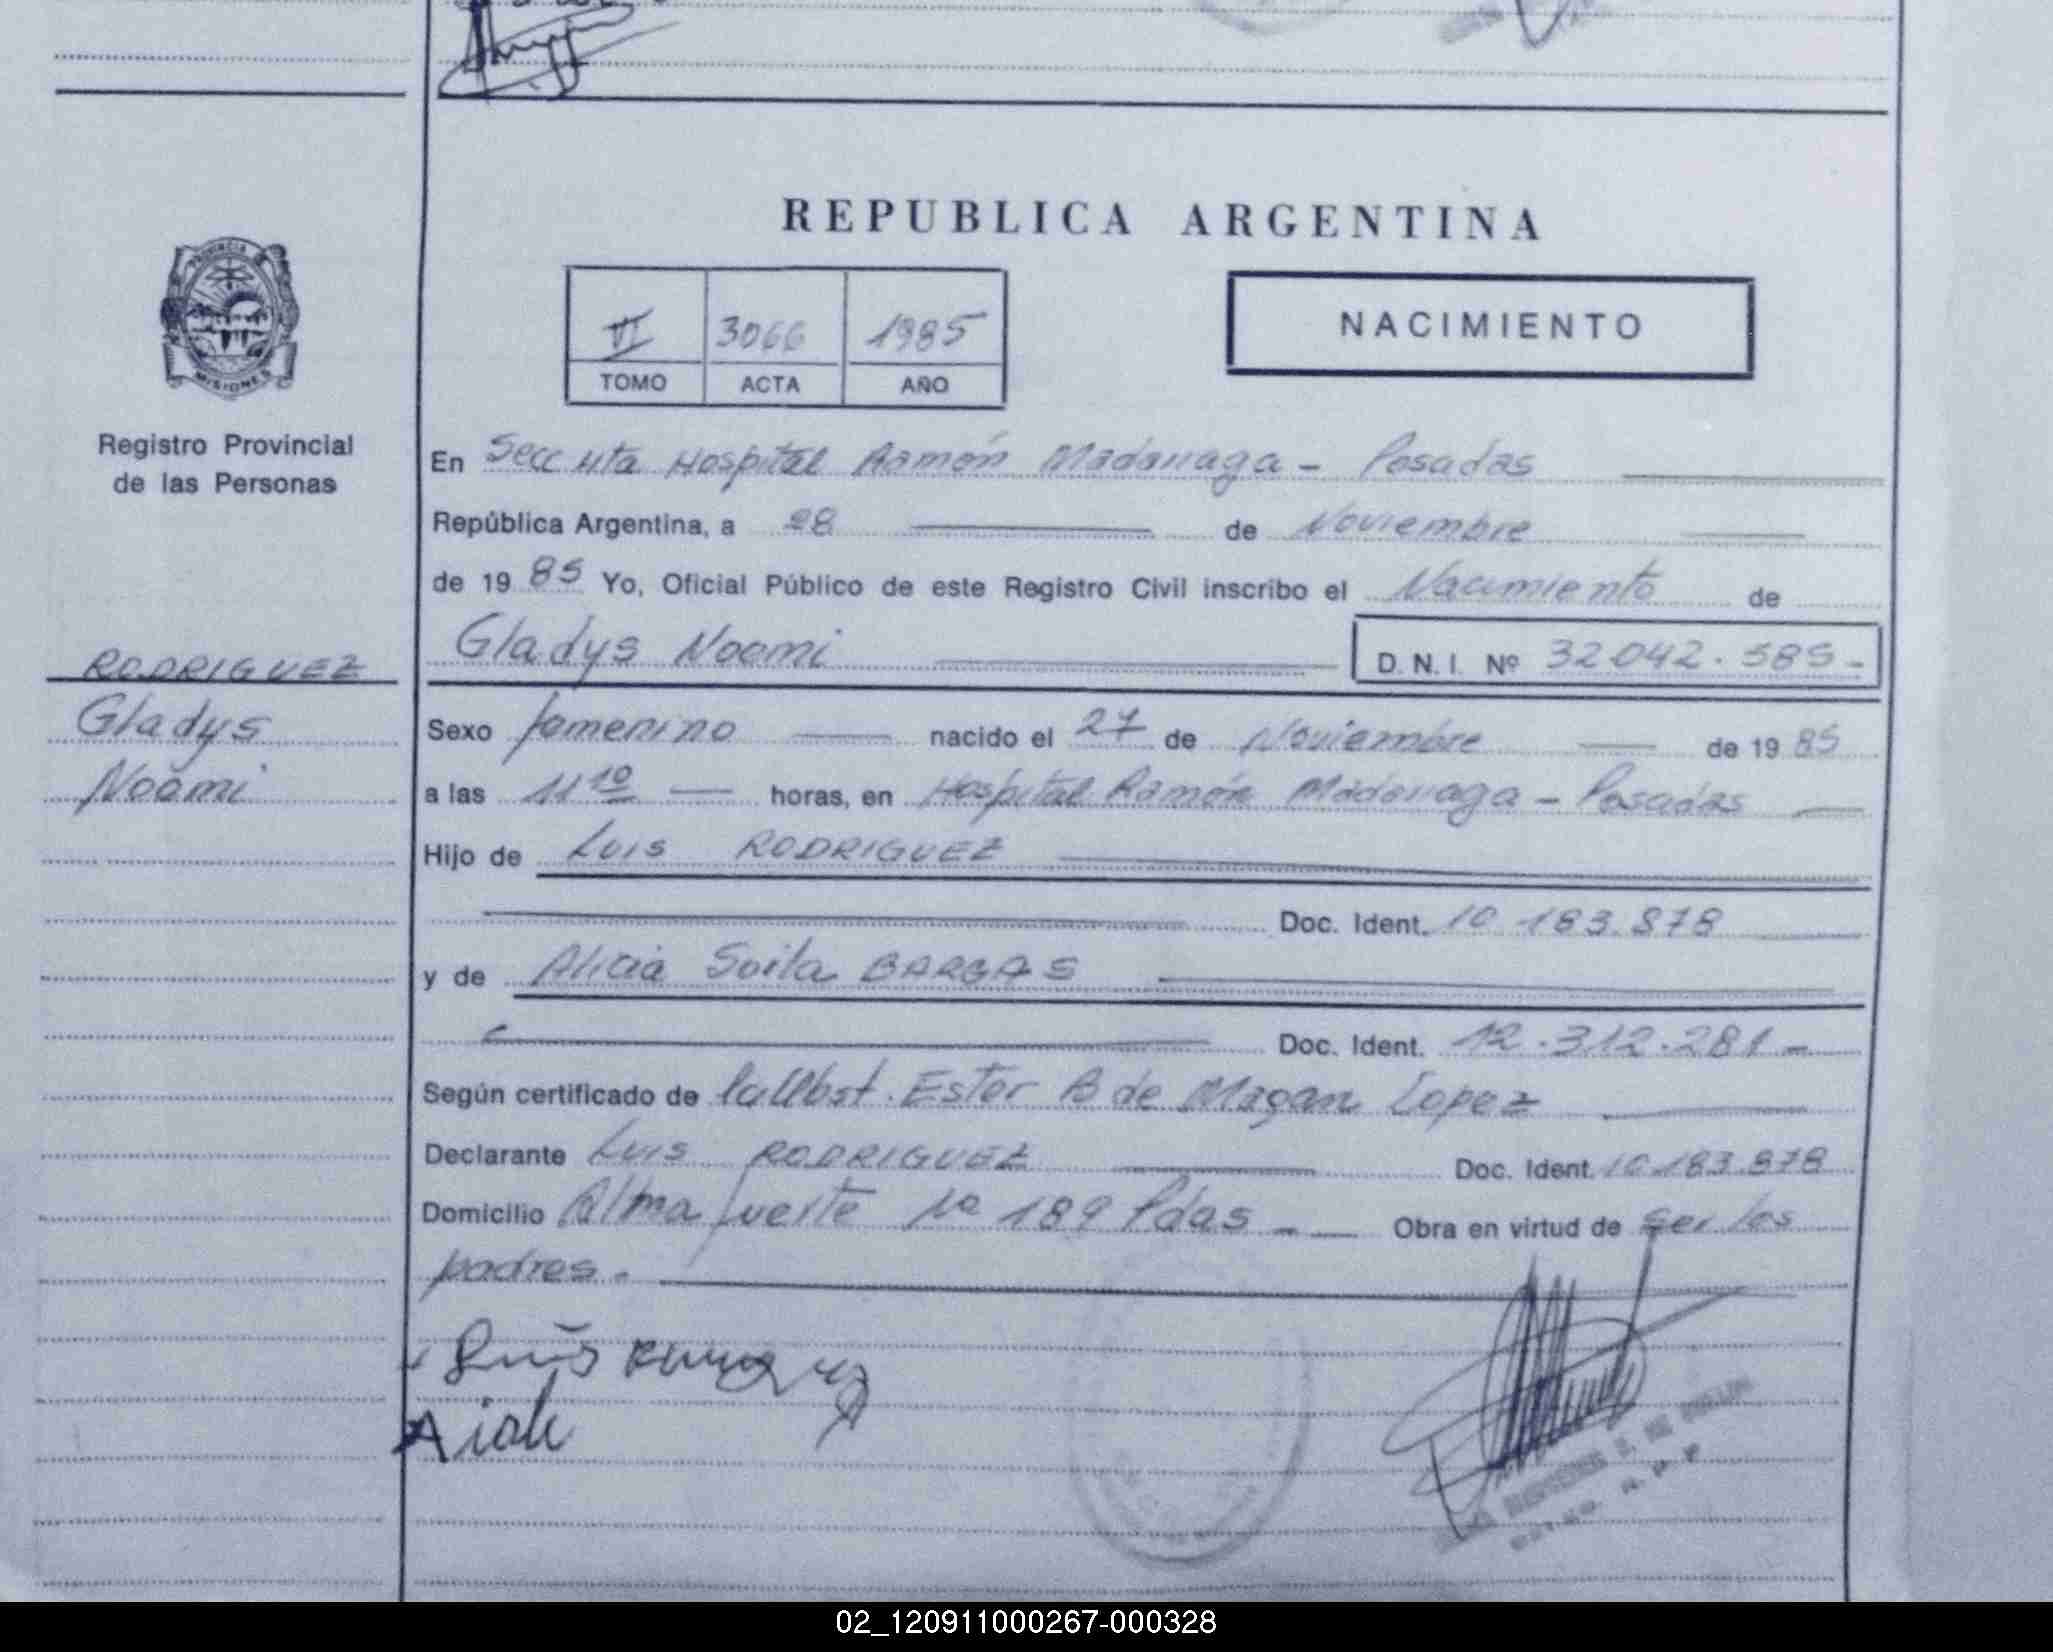 REPUBLICA ARGENTINA
PROVINCIA
MISIONES
Registro Provincial
de las Personas
VI 3066 1985
TOMO ACTA AÑO
NACIMIENTO
En Secc Hospital Ramón Madariaga - Posadas
República Argentina, a 28 de Noviembre
de 19 85 Yo, Oficial Público de este Registro Civil inscribo el Nacimiento de
Gladys Noemi D. N. I. Nº 32042.585-
RODRIGUEZ
Gladys
Noemi
Sexo femenino nacido el 27 de Noviembre de 19 85
a las 11 10 horas, en Hospital Ramón Madariaga - Posadas
Hijo de Luis RODRIGUEZ
Doc. Ident. 10.183.878
y de Alicia Soila BARGAS
Doc. Ident. 12.312.281-
Según certificado de Ester B de Magan Lopez
Declarante Luis RODRIGUEZ Doc. Ident. 10.183.878
Domicilio Alma fuerte Nº 189 Pdas - Obra en virtud de ser los
padres.-
Luis
02_120911000267-000328